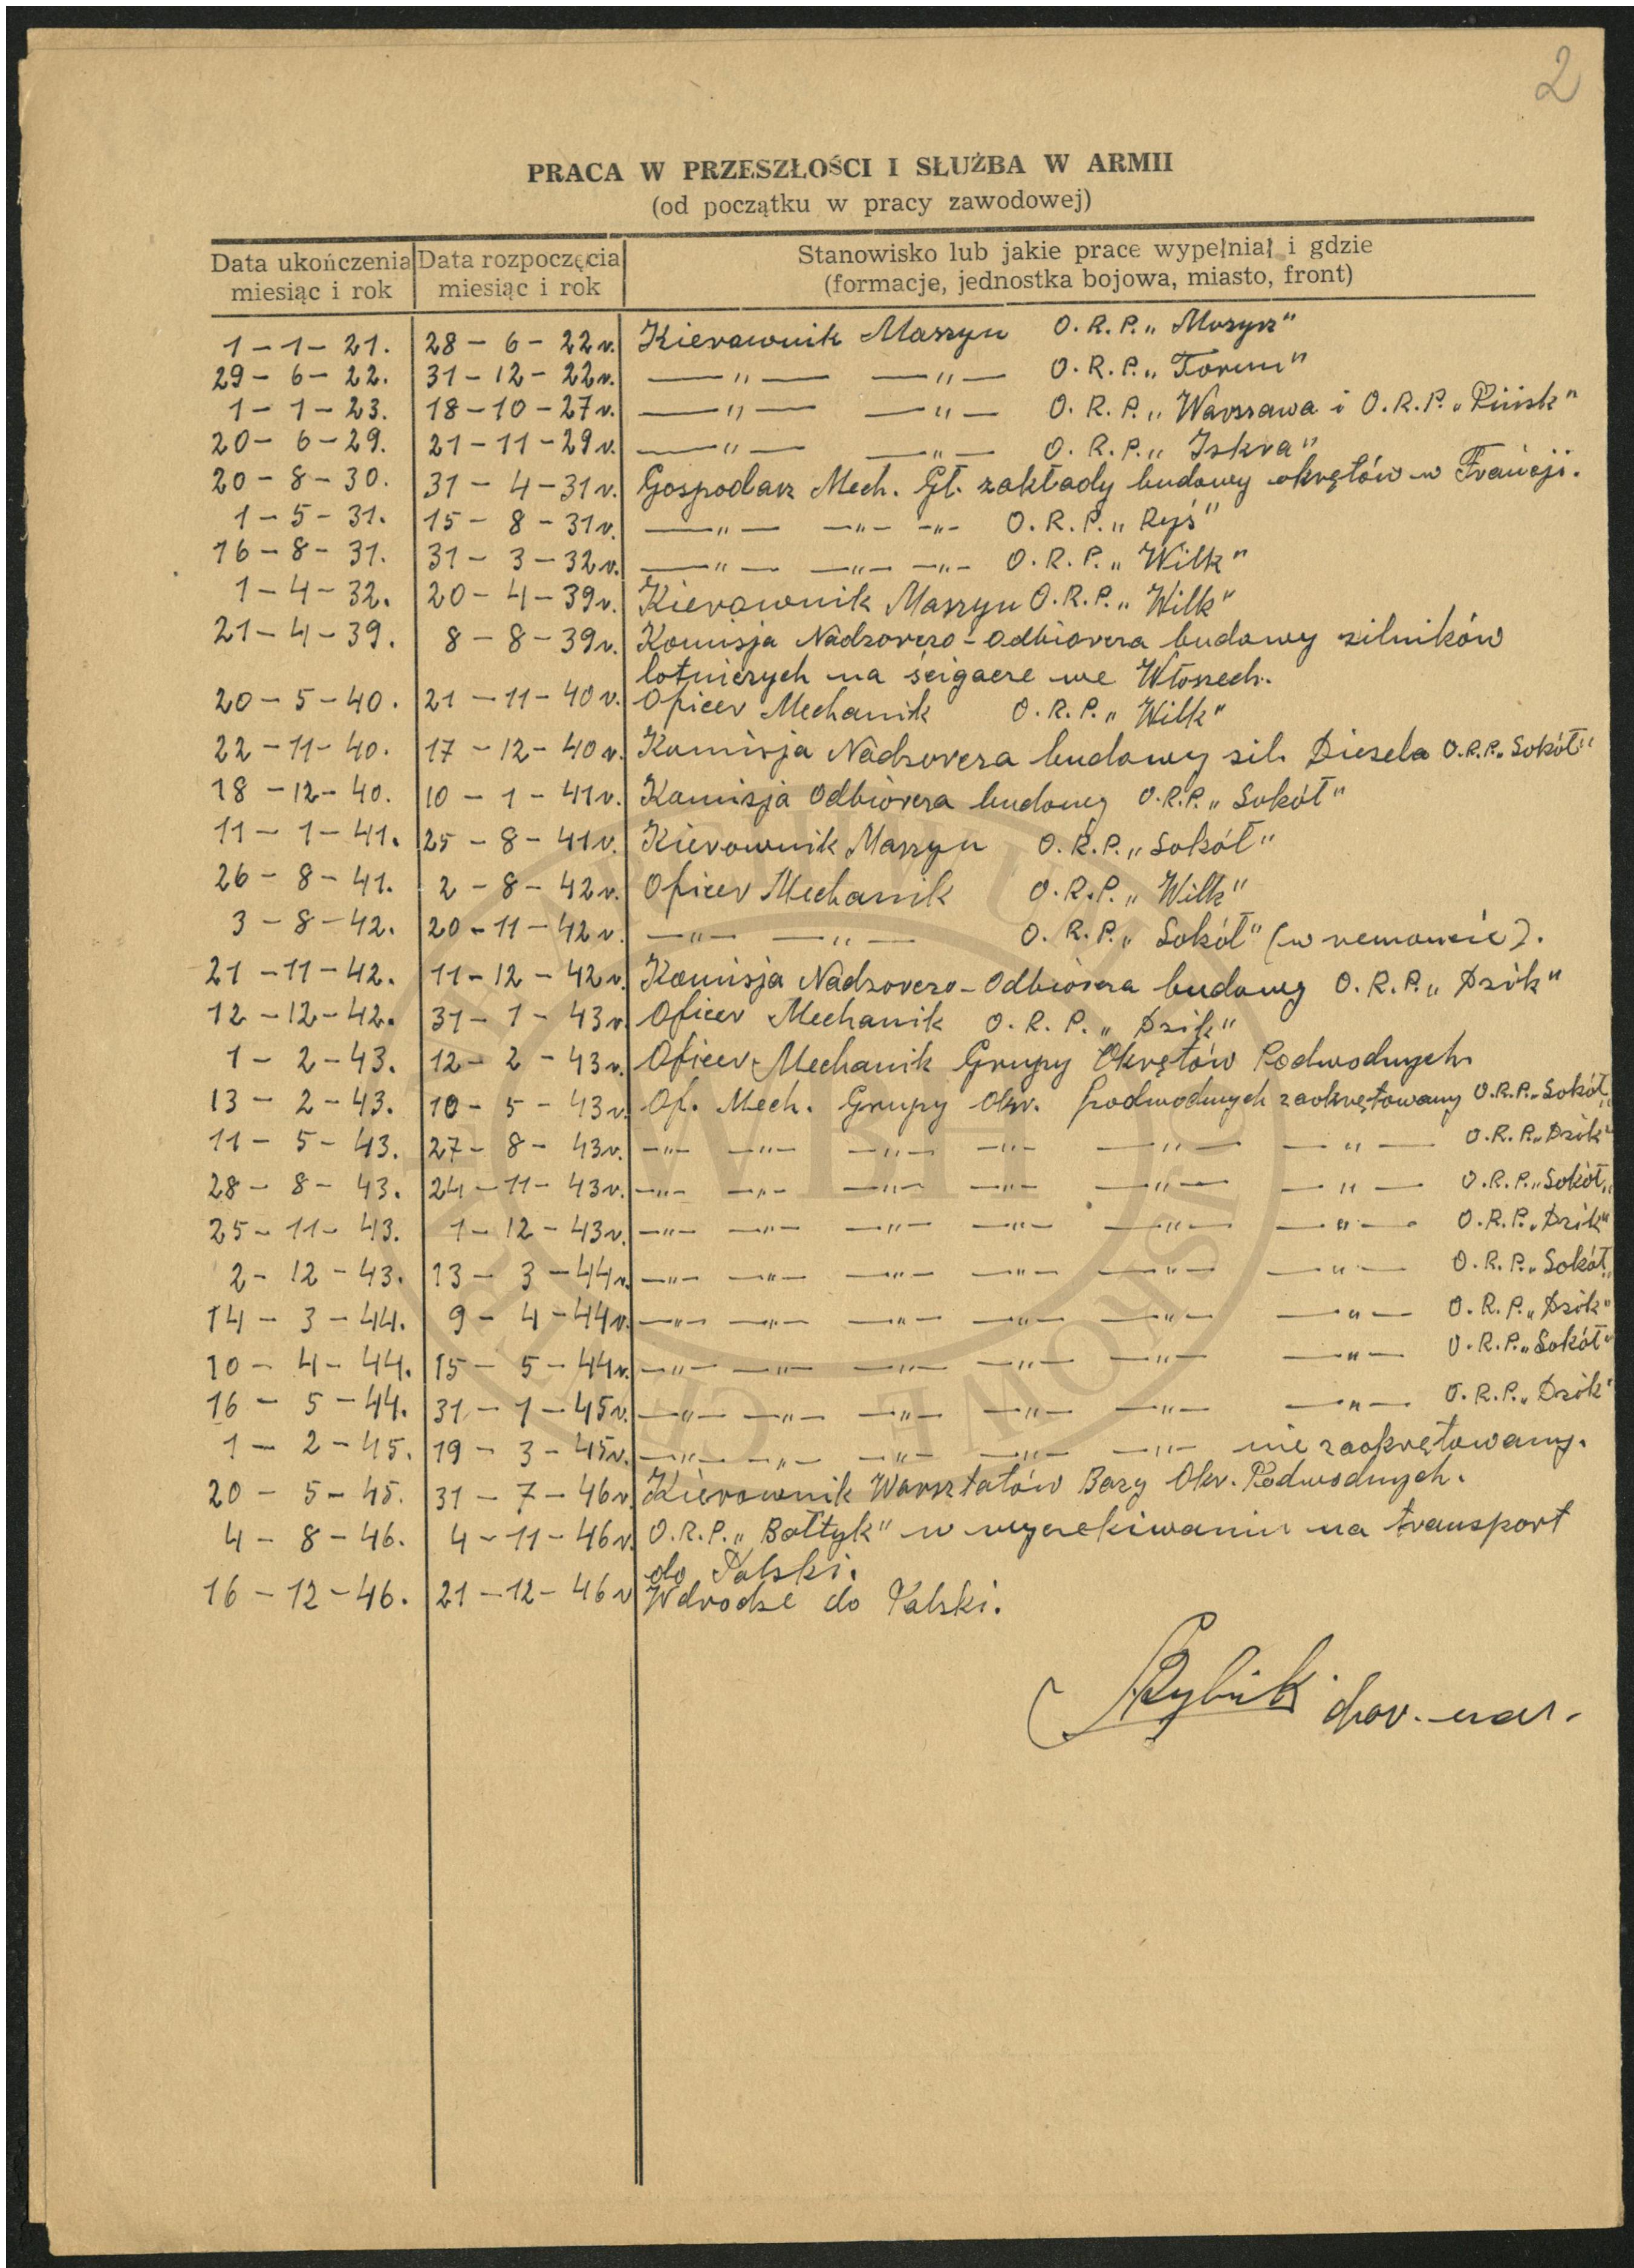 2
PRACA W PRZESZŁOŚCI I SŁUŻBA W ARMII
(od początku w pracy zawodowej)
Data ukończenia miesiąc i rok | Data rozpoczęcia miesiąc i rok | Stanowisko lub jakie prace wypełniał i gdzie (formacje, jednostka bojowa, miasto, front)
1 - 1 - 21. 28 - 6 - 22 r. Kierownik Maszyn O.R.P. „Mozyrz"
29 - 6 - 22. 31 - 12 - 22 r. —"— —"— O.R.P. „Toruń"
1 - 1 - 23. 18 - 10 - 27 r. —"— —"— O.R.P. „Warszawa i O.R.P. „Pińsk"
20 - 6 - 29. 21 - 11 - 29 r. —"— —"— O.R.P. „Iskra"
20 - 8 - 30. 31 - 4 - 31 r. Gospodarz Mech. Gł. zakłady budowy okrętów w Francji.
1 - 5 - 31. 15 - 8 - 31 r. —"— —"— —"— O.R.P. „Ryś"
16 - 8 - 31. 31 - 3 - 32 r. —"— —"— —"— O.R.P. „Wilk"
1 - 4 - 32. 20 - 4 - 39 r. Kierownik Maszyn O.R.P. „Wilk"
21 - 4 - 39. 8 - 8 - 39 r. Komisja Nadzorczo-odbiorcza budowy silników
lotniczych na ścigacze we Włoszech.
20 - 5 - 40. 21 - 11 - 40 r. Oficer Mechanik O.R.P. „Wilk"
22 - 11 - 40. 17 - 12 - 40 r. Komisja Nadzorcza budowy sil. Diesela O.R.P. „Sokół"
18 - 12 - 40. 10 - 1 - 41 r. Komisja Odbiorcza budowy O.R.P. „Sokół"
11 - 1 - 41. 25 - 8 - 41 r. Kierownik Maszyn O.R.P. „Sokół"
26 - 8 - 41. 2 - 8 - 42 r. Oficer Mechanik O.R.P. „Wilk"
3 - 8 - 42. 20 - 11 - 42 r. —"— —"— O.R.P. „Sokół" (w remoncie).
21 - 11 - 42. 11 - 12 - 42 r. Komisja Nadzorczo-Odbiorcza budowy O.R.P. „Dzik"
12 - 12 - 42. 31 - 1 - 43 r. Oficer Mechanik O.R.P. „Dzik"
1 - 2 - 43. 12 - 2 - 43 r. Oficer Mechanik Grupy Okrętów Podwodnych
13 - 2 - 43. 10 - 5 - 43 r. Of. Mech. Grupy Okr. podwodnych zaokrętowany O.R.P. „Sokół"
11 - 5 - 43. 27 - 8 - 43 r. —"— —"— —"— —"— —"— —"— O.R.P. „Dzik"
28 - 8 - 43. 24 - 11 - 43 r. —"— —"— —"— —"— —"— —"— O.R.P. „Sokół"
25 - 11 - 43. 1 - 12 - 43 r. —"— —"— —"— —"— —"— —"— O.R.P. „Dzik"
2 - 12 - 43. 13 - 3 - 44 r. —"— —"— —"— —"— —"— —"— O.R.P. „Sokół"
14 - 3 - 44. 9 - 4 - 44 r. —"— —"— —"— —"— —"— —"— O.R.P. „Dzik"
10 - 4 - 44. 15 - 5 - 44 r. —"— —"— —"— —"— —"— —"— O.R.P. „Sokół"
16 - 5 - 44. 31 - 1 - 45 r. —"— —"— —"— —"— —"— —"— O.R.P. „Dzik"
1 - 2 - 45. 19 - 3 - 45 r. —"— —"— —"— —"— —"— nie zaokrętowany.
20 - 5 - 45. 31 - 7 - 46 r. Kierownik Warsztatów Bazy Okr. Podwodnych.
4 - 8 - 46. 4 - 11 - 46 r. O.R.P. „Bałtyk" w wyczekiwaniu na transport
do Polski.
16 - 12 - 46. 21 - 12 - 46 r W drodze do Polski.
Rybik chor. mar.